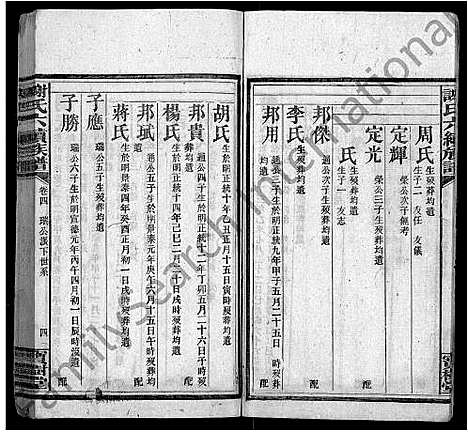 謝氏六續族譜
周氏
生歿葬均遺
生子二 友任 友儀
定輝
榮公次子佩考
定光
榮公三子生歿葬均遺
氏
生歿葬均遺
生子一 友志
邦傑
通公次子生歿葬均遺
李氏
生歿葬均遺
邦用
通公三子生於明正統九年甲子五月二十五日
時歿葬均遺
配
胡氏
生於明正統十年乙丑正月十五日寅時歿葬均
遺
邦貴
通公四子生於明正統十二年丁卯五月二十六日子時
歿葬均遺
配
楊氏
生於明正統十四年己巳二月二十日戌時歿葬均遺
邦珷
通公五子生於明景泰元年庚午六月十五日午時歿葬均
遺
配
蔣氏
生於明景泰四年癸酉正月初一日戌時歿葬均遺
子應
瑞公五子生歿葬均遺
子勝
瑞公六子生於明宣德元年丙午四月初一日辰時歿
葬均遺
配
謝氏六續族譜
卷四
瑞公漢下世系
四
寶樹堂
FamilySearch International